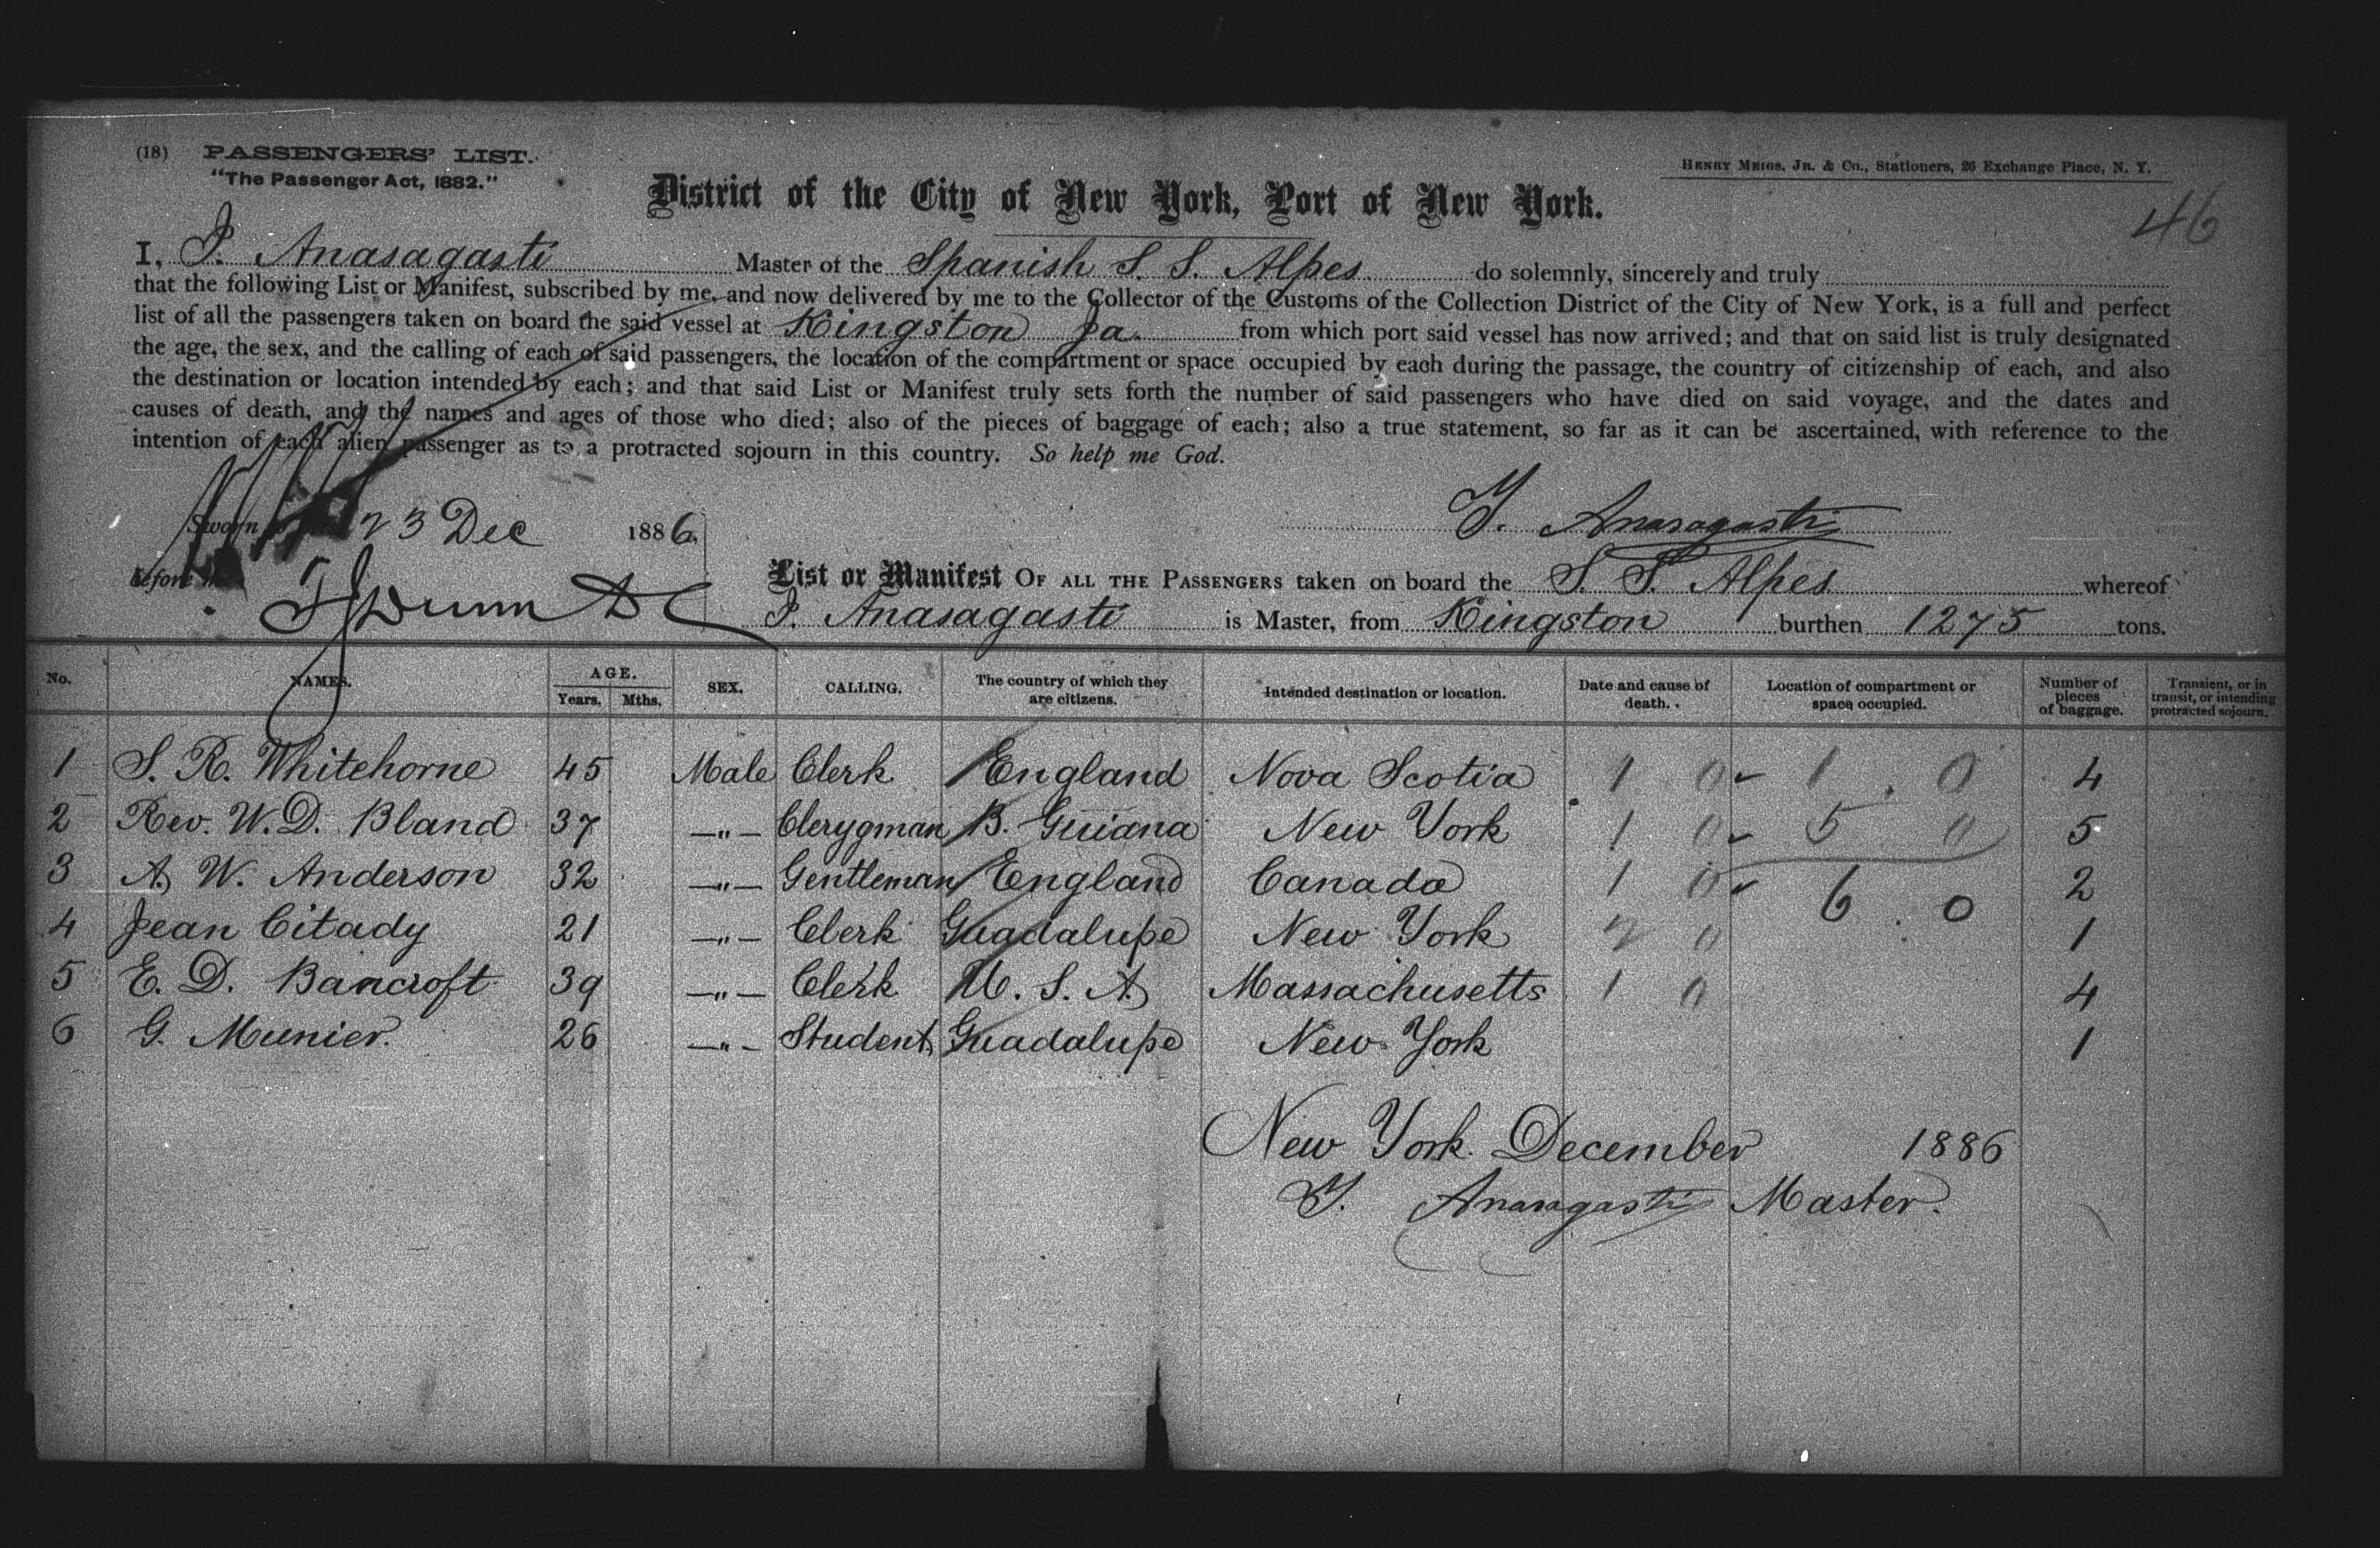 (18) PASSENGERS' LIST.
"The Passenger Act, 1882."
HENRY MEIGS, JR. & Co., Stationers, 26 Exchange Place, N. Y.
District of the City of New York, Port of New York.
46
I, J. Anasagasti Master of the Spanish S. S. Alpes do solemnly, sincerely and truly
that the following List or Manifest, subscribed by me, and now delivered by me to the Collector of the Customs of the Collection District of the City of New York, is a full and perfect
list of all the passengers taken on board the said vessel at Kingston Ja. from which port said vessel has now arrived; and that on said list is truly designated
the age, the sex, and the calling of each of said passengers, the location of the compartment or space occupied by each during the passage, the country of citizenship of each, and also
the destination or location intended by each; and that said List or Manifest truly sets forth the number of said passengers who have died on said voyage, and the dates and
causes of death, and the names and ages of those who died; also of the pieces of baggage of each; also a true statement, so far as it can be ascertained, with reference to the
intention of each alien passenger as to a protracted sojourn in this country. So help me God.
Sworn 23 Dec 1886,
Y. Anasagasti
before me
List or Manifest OF ALL THE PASSENGERS taken on board the S. S. Alpes whereof
J. Anasagasti is Master, from Kingston burthen 1275 tons.
No. NAMES. AGE. Years. Mths. SEX. CALLING. The country of which they are citizens. Intended destination or location. Date and cause of death. Location of compartment or space occupied. Number of pieces of baggage. Transient, or in transit, or intending protracted sojourn.
1 S. R. Whitehorne 45 Male Clerk England Nova Scotia 1 0 1 0 4
2 Rev. W. D. Bland 37 —"— Clerygman B. Guiana New York 1 0 5 0 5
3 A. W. Anderson 32 —"— Gentleman England Canada 1 0 6 0 2
4 Jean Citady 21 —"— Clerk Guadalupe New York 2 0 1
5 E. D. Bancroft 39 —"— Clerk U. S. A. Massachusetts 1 0 4
6 G. Munier. 26 —"— Student Guadalupe New York 1
New York December 1886
Y. Anasagasti Master.